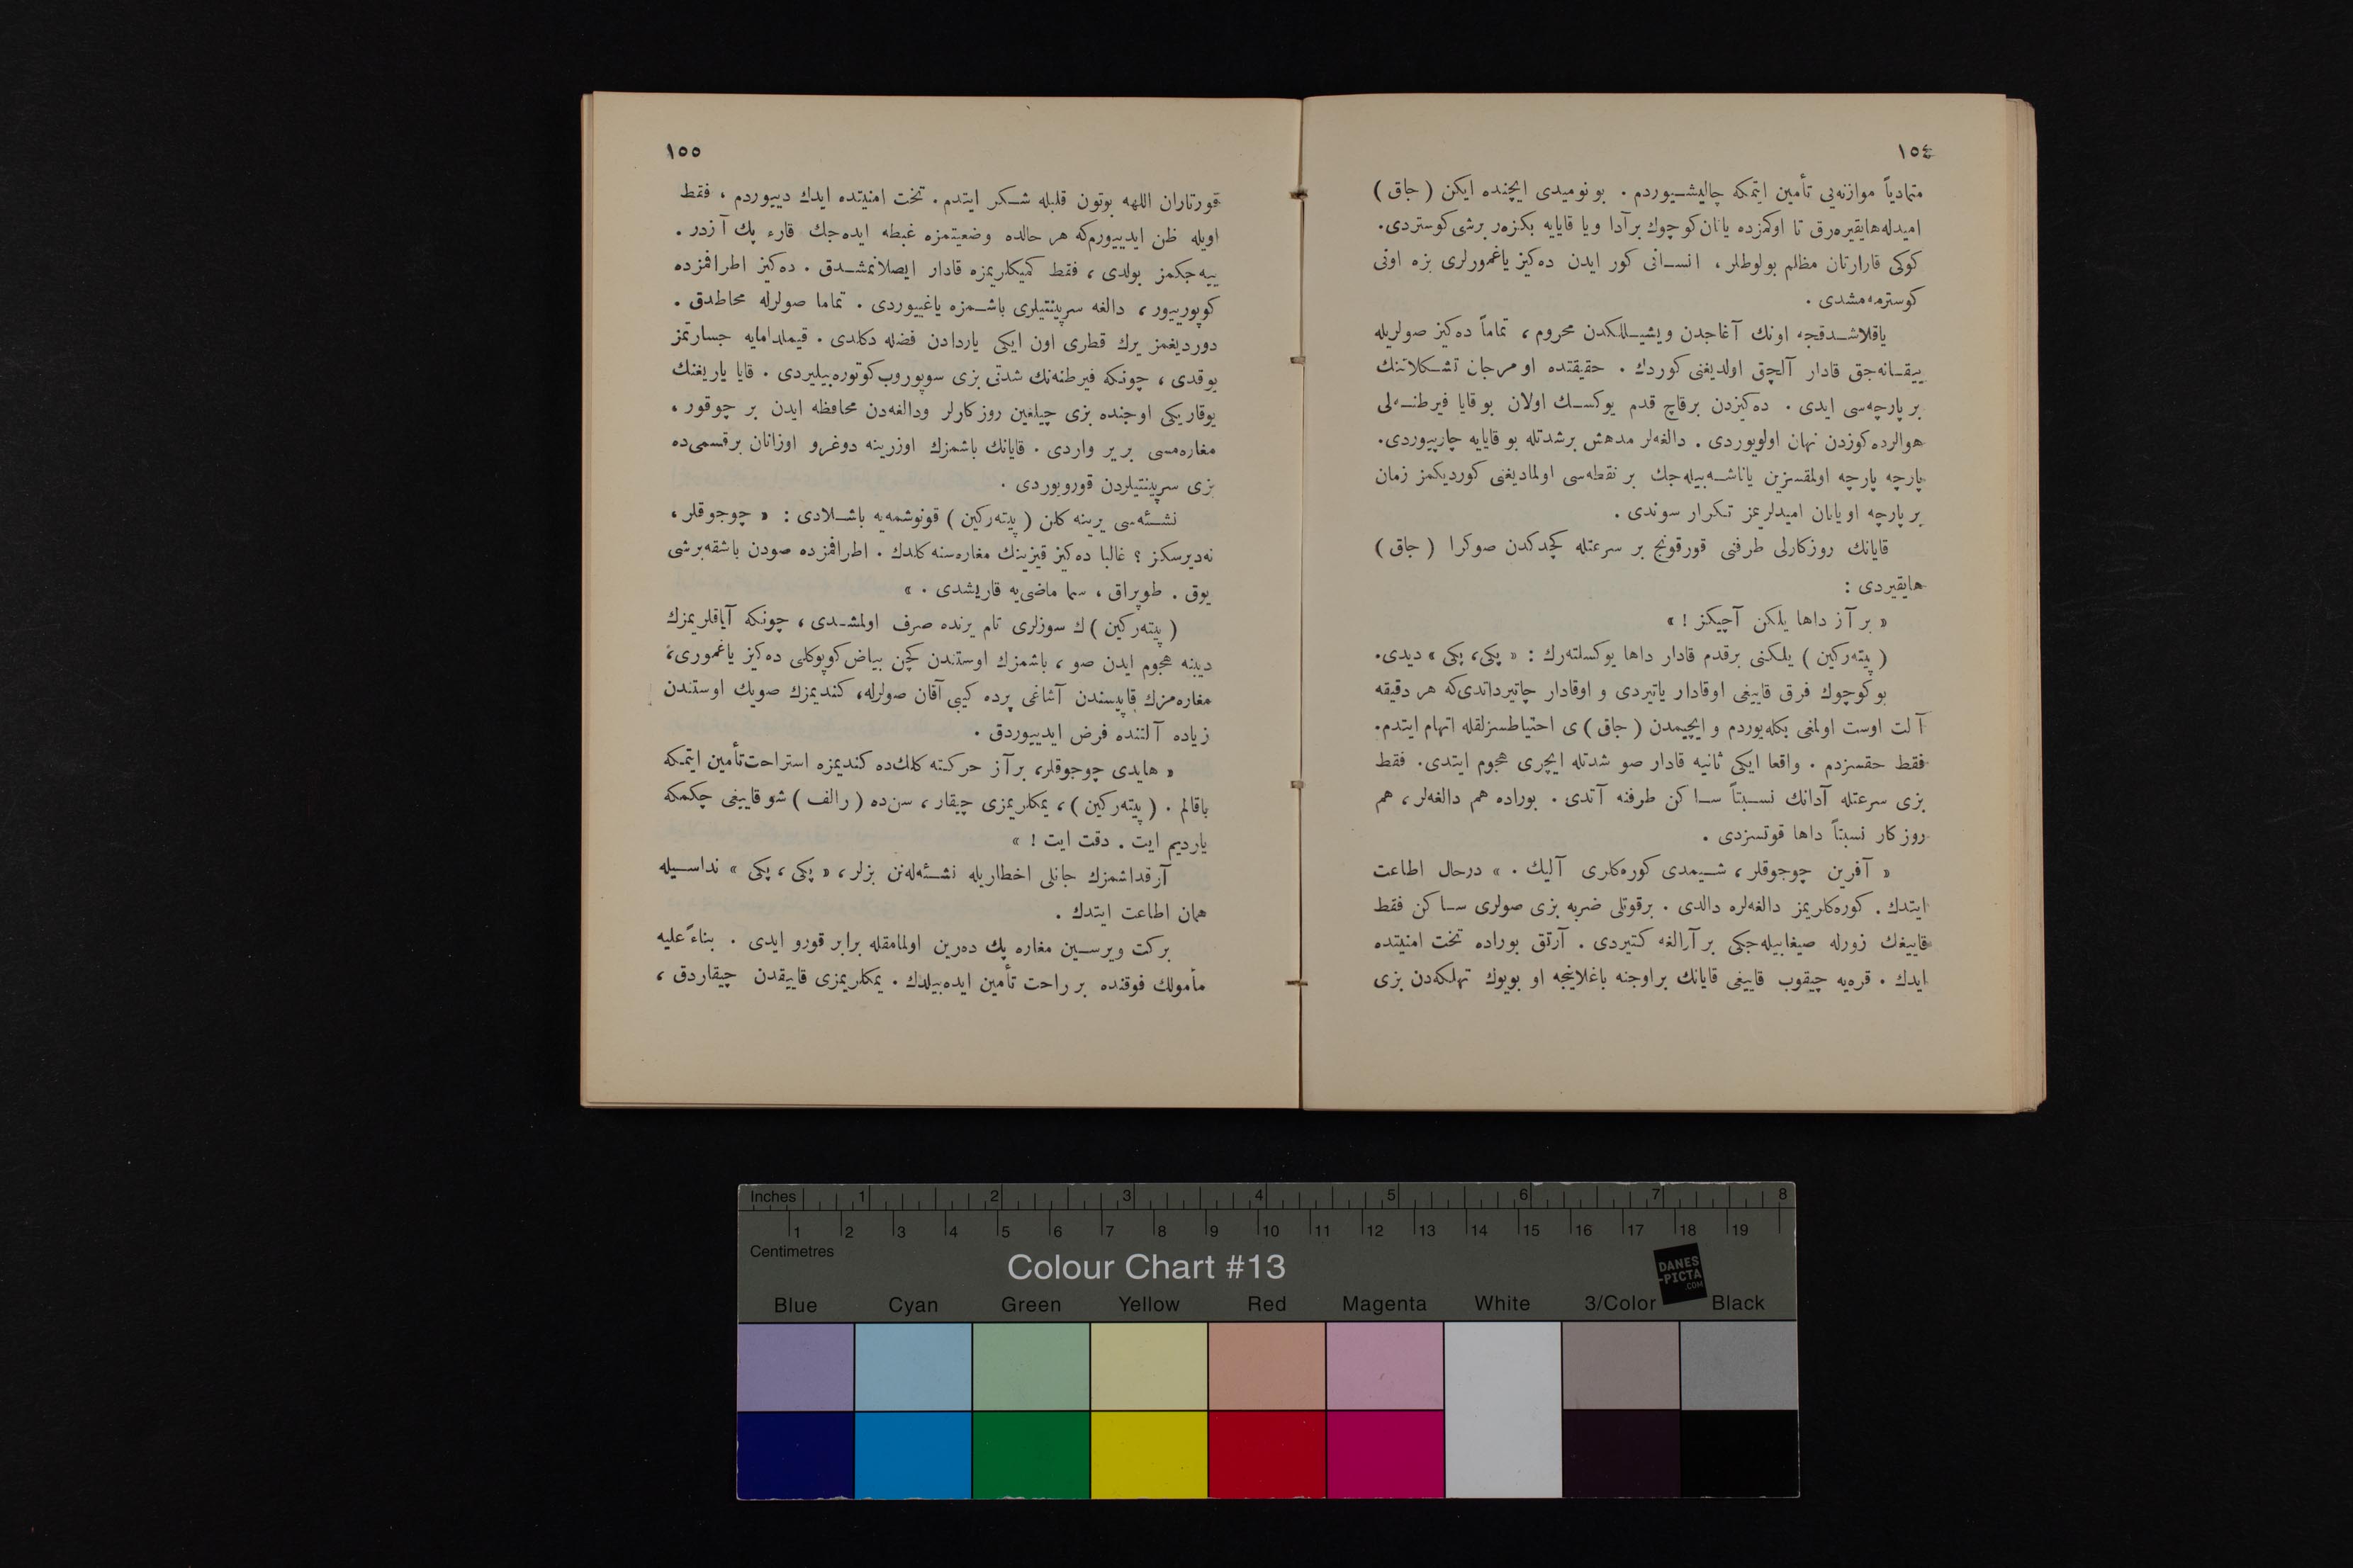 ١٥٤
متمادياً موازنه‌يی تأمين ايتمكه چاليشيوردم . بو نوميدی ايچنده ايكن ( جاق )
اميدله هايقيره‌رق تا اوكمزده يانان كوچوك بر آدا ويا قايايه بكزه‌ر برشی كوستردی.
كوكی قارارتان مظلم بولوطلر ، انسانی كور ايدن ده‌كيز ياغمورلری بزه اونی
كوسترمه‌مشدی .
ياقلاشدقجه اونك آغاجدن ويشيللكدن محروم ، تماماً ده‌كيز صولريله
ييقانه‌جق قادار آلچق اولديغنی كوردك . حقيقتده او مرجان تشكلاتنك
بر پارچه‌سی ايدی . ده‌كيزدن برقاچ قدم يوكسك اولان بو قايا فيرطنه‌لی
هوالرده كوزدن نهان اولويوردی . دالغه‌لر مدهش برشدتله بو قايايه چارپيوردی.
پارچه پارچه اولمقسزين ياناشه‌بيله‌جك بر نقطه‌سی اولماديغنی كورديكمز زمان
بر پارچه اويانان اميدلريمز تكرار سوندی .
قايانك روزكارلی طرفنی قورقونج بر سرعتله كچدكدن صوكرا ( جاق )
هايقيردی :
« بر آز داها يلكن آچيكز ! »
( پيته‌ركين ) يلكنی برقدم قادار داها يوكسلته‌رك : « پكی، پكی » ديدی.
بو كوچوك فرق قاييغی اوقادار ياتيردی و اوقادار چاتيرداتدی كه هر دقيقه
آلت اوست اولمغی بكله‌يوردم و ايچيمدن ( جاق ) ی احتياطسزلقله اتهام ايتدم.
فقط حقسزدم . واقعا ايكی ثانيه قادار صو شدتله ايچری هجوم ايتدی. فقط
بزی سرعتله آدانك نسبتاً ساكن طرفنه آتدی . بوراده هم دالغه‌لر ، هم
روزكار نسبتاً داها قوتسزدی .
« آفرين چوجوقلر ، شيمدی كوره‌كلری آليك . » درحال اطاعت
ايتدك . كوره‌كلريمز دالغه‌لره دالدی . برقوتلی ضربه بزی صولری ساكن فقط
قاييغك زورله صيغابيله‌جكی بر آرالغه كتيردی . آرتق بوراده تحت امنيتده
ايدك . قره‌يه چيقوب قاييغی قايانك براوجنه باغلاينجه او بويوك تهلكه‌دن بزی
١٥٥
قورتاران اللهه بوتون قلبله شكر ايتدم . تحت امنيتده ايدك دييوردم ، فقط
اويله ظن ايدييورم‌كه هر حالده وضعيتمزه غبطه ايده‌جك قارء پك آزدر .
ييه‌جكمز بولدی ، فقط كميكلريمزه قادار ايصلانمشدق . ده‌كيز اطرافمزده
كوپورييور ، دالغه سرپينتيلری باشمزه ياغييوردی . تماما صولرله محاطدق .
دورديغمز يرك قطری اون ايكی ياردادن فضله دكلدی . قيملدامايه جسارتمز
يوقدی ، چونكه فيرطنه‌نك شدتی بزی سوپوروب كوتوره‌بيليردی . قايا ياريغنك
يوقاريكی اوجنده بزی چيلغين روزكارلر ودالغه‌دن محافظه ايدن بر چوقور ،
مغاره‌مسی بر ير واردی . قايانك باشمزك اوزرينه دوغرو اوزانان برقسمی ده
بزی سرپينتيلردن قورويوردی .
نشئه‌سی يرينه كلن ( پيته‌ركين ) قونوشمه‌يه باشلادی : « چوجوقلر ،
نه‌ديرسكز ؟ غالبا ده‌كيز قيزينك مغاره‌سنه كلدك . اطرافمزده صودن باشقه برشی
يوق . طوپراق ، سما ماضی‌يه قاريشدی . »
( پيته‌ركين ) ك سوزلری تام يرنده صرف اولمشدی ، چونكه آياقلريمزك
ديبنه هجوم ايدن صو ، باشمزك اوستندن كچن بياض كوپوكلی ده‌كيز ياغموری ،
مغاره‌مزك قاپيسندن آشاغی پرده كيبی آقان صولرله، كنديمزك صويك اوستندن
زياده آلتنده فرض ايدييوردق .
« هايدی چوجوقلر، بر آز حركته كلك‌ده كنديمزه استراحت تأمين ايتمكه
باقالم . ( پيته‌ركين ) ، يمكلريمزی چيقار ، سن‌ده ( رالف ) شو قاييغی چكمكه
يارديم ايت . دقت ايت ! »
آرقداشمزك جانلی اخطاريله نشئه‌له‌نن بزلر ، « پكی ، پكی » نداسيله
همان اطاعت ايتدك .
بركت ويرسين مغاره پك ده‌رين اولمامقله برابر قورو ايدی . بناءً عليه
مأمولك فوقنده بر راحت تأمين ايده‌بيلدك . يمكلريمزی قاييقدن چيقاردق ،
Inches 1 2 3 4 5 6 7 8
1 2 3 4 5 6 7 8 9 10 11 12 13 14 15 16 17 18 19
Centimetres
Colour Chart #13
DANES
-PICTA
.COM
Blue Cyan Green Yellow Red Magenta White 3/Color Black